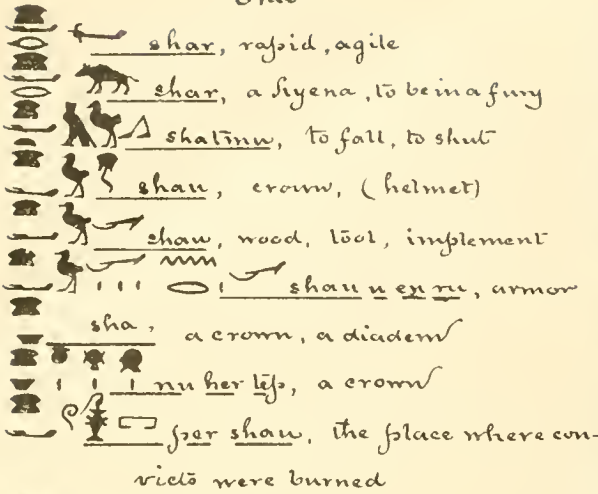 shar, rapid, agile
shar, a hyena, to be in a fury
shatmu, to fall, to shut
shau, crown, (helmet)
shau, wood, tool, implement
shau u en ru, armor
sha, a crown, a diadem
nu her tep, a crown
per shau, the place where con-
victs were burned